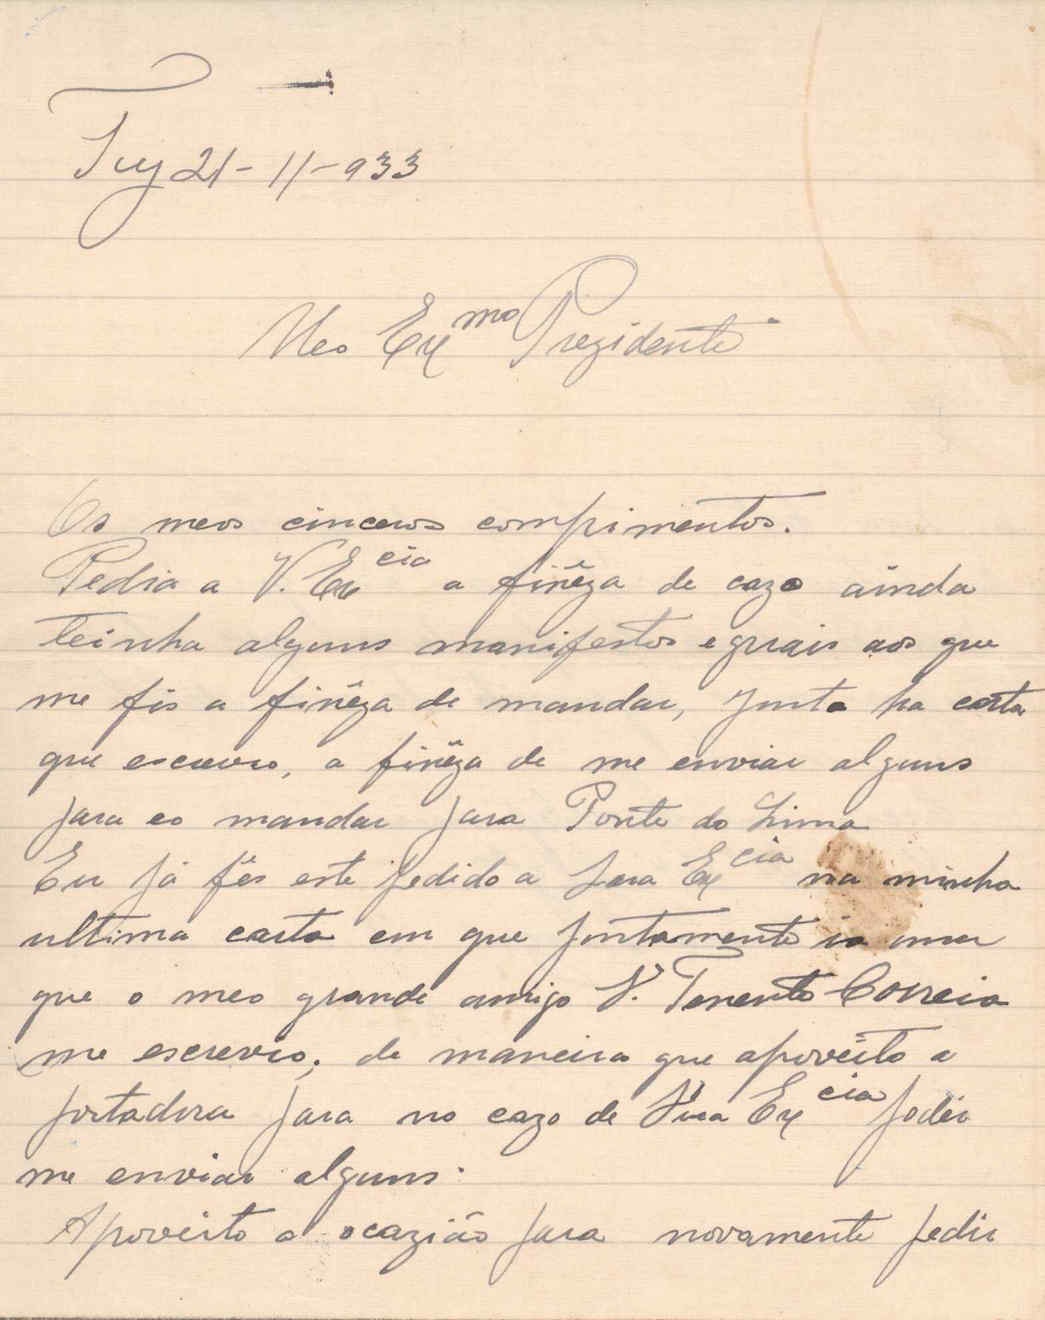 Tuy 21-11-933
Meo Exmo Prezidente
Os meos cinceros compimentos.
Pedia a V. Excia a finêza de cazo ainda
teinha alguns manifestos eguais aos que
me fis a finêza de mandar, junto ha carta
que escrevio, a finêza de me enviar alguns
para eo mandar para Ponte do Lima
Eu já fês este pedido a Sua Excia na minha
ultima carta em que juntamente ia uma
que o meo grande amigo S. Tenente Correia
me escrevio; de maneira que apoveito a
portadora para no cazo de Sua Excia poder
me enviar alguns.
Apoveito a ocazião para novamente pedir